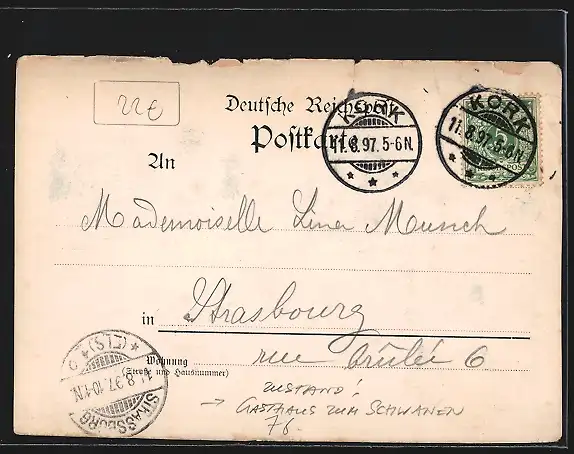 22€
Deutsche Reichspost
Postkarte
KORK
11.8.97.5-6N.
KORK
11.8.97.5-6N.
An
Mademoiselle Lina Munsch
in Strasbourg
Wohnung
(Straße und Hausnummer)
rue brûlée 6
STRASSBURG
*(ELS)* c
11.8.97.10-11N.
ZUSTAND!
→ GASTHAUS ZUM SCHWANEN
76